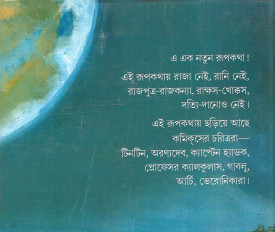 এ এক নতুন রূপকথা!
এই রূপকথায় রাজা নেই, রানি নেই,
রাজপুত্র-রাজকন্যা, রাক্ষস-খোক্কস,
দত্যি-দানোও নেই।
এই রূপকথায় ছড়িয়ে আছে
কমিক্‌সের চরিত্ররা—
টিনটিন, অরণ্যদেব, ক্যাপ্টেন হ্যাডক,
প্রোফেসর ক্যালকুলাস, গাবলু,
আর্চি, ভেরোনিকারা।